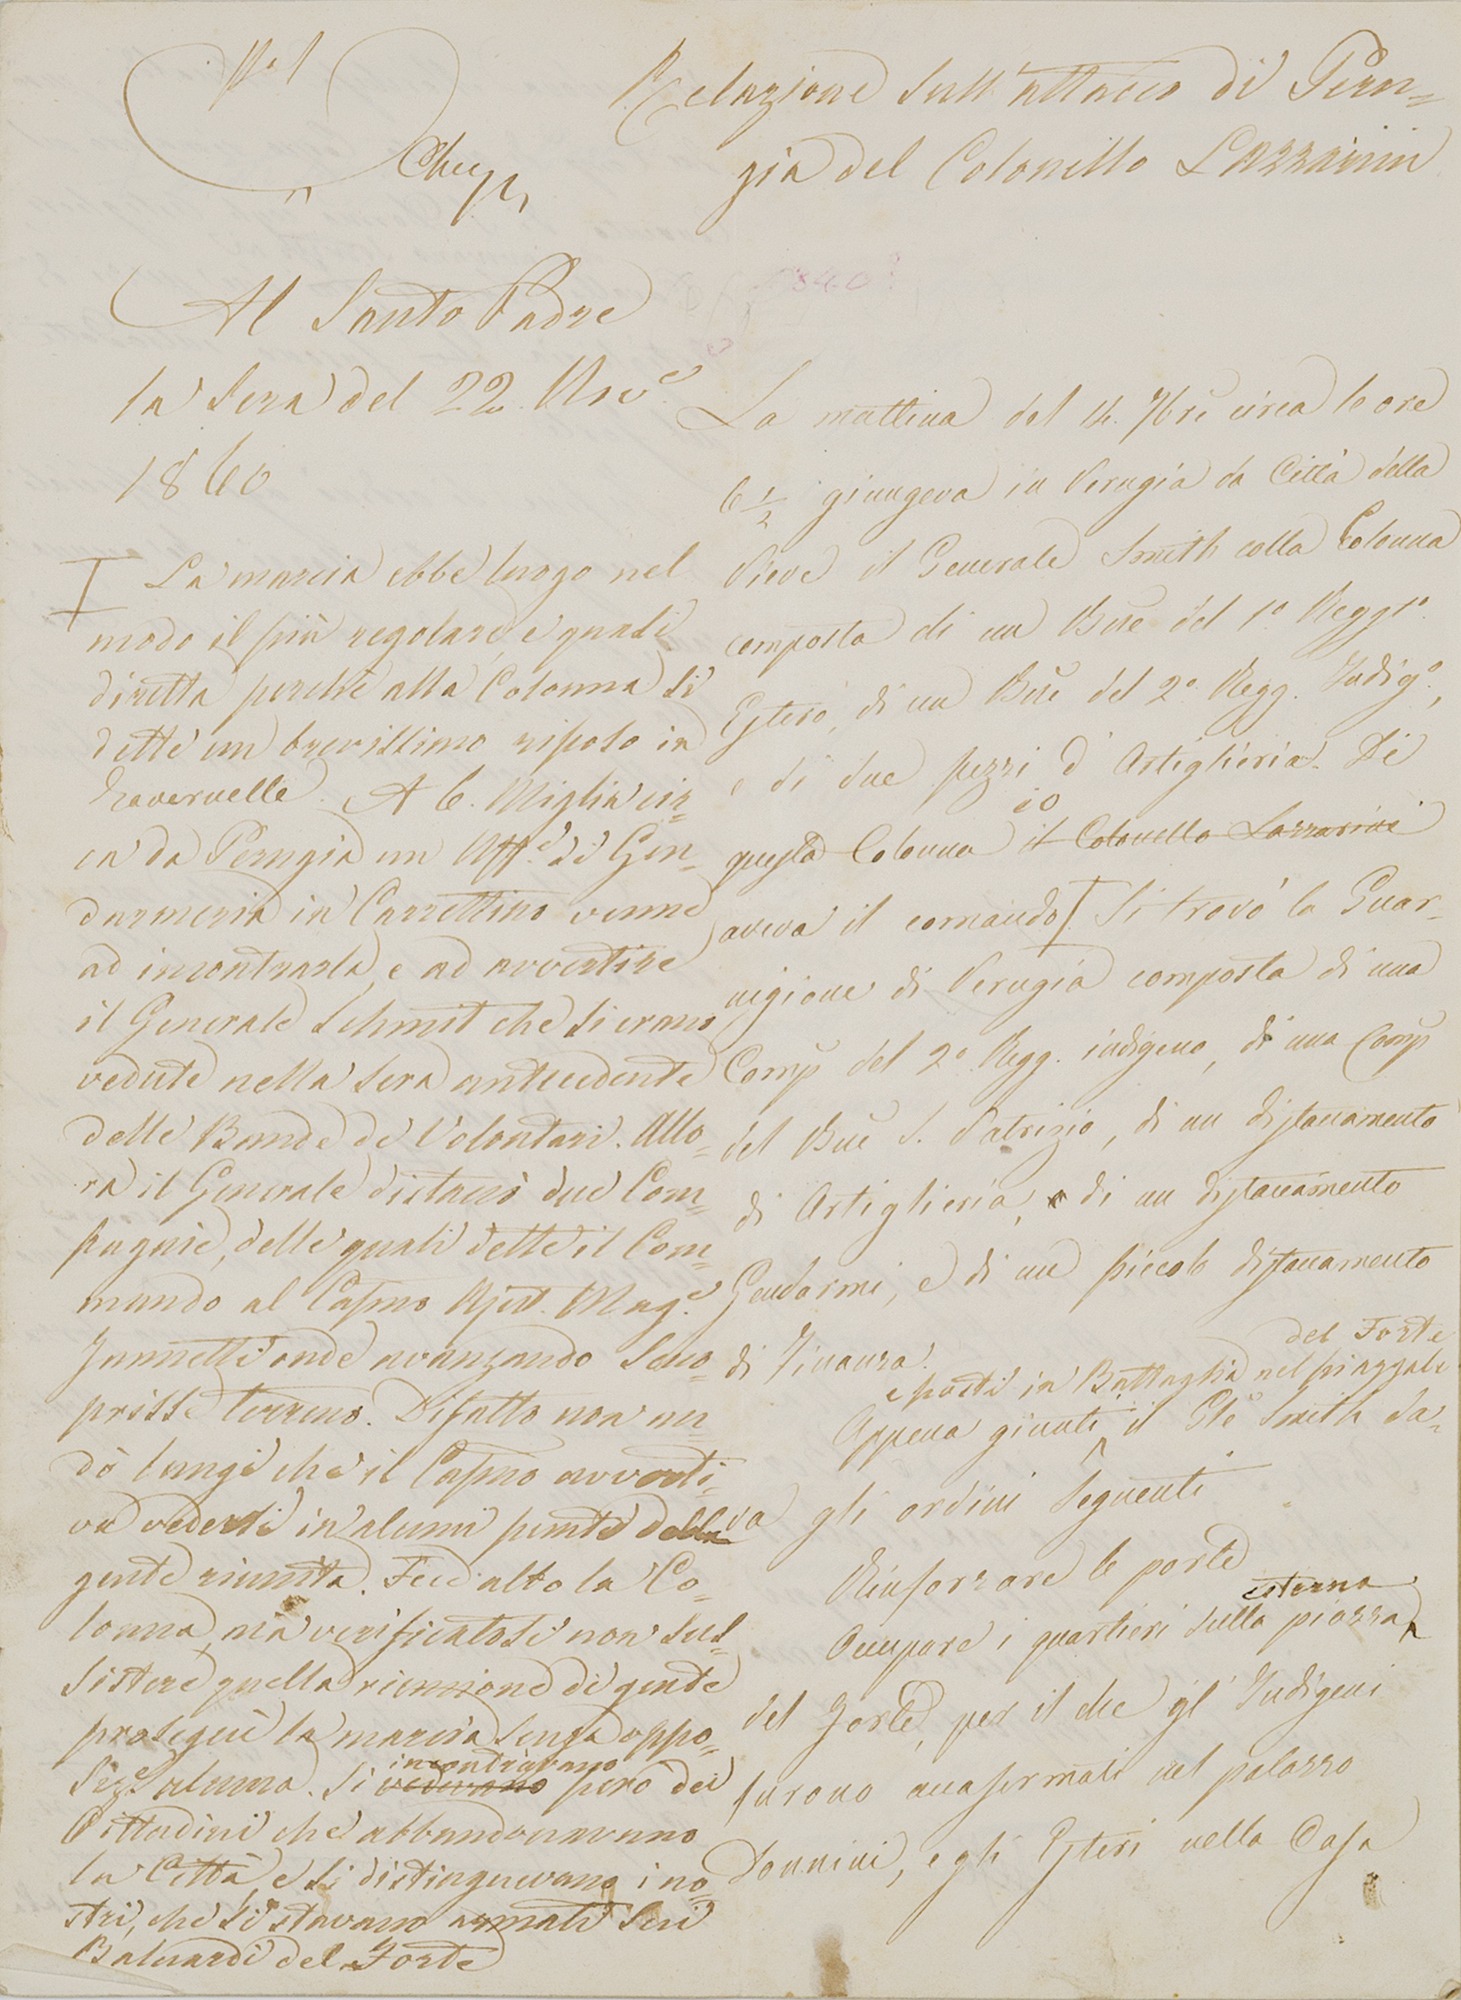 N.° 1
Relazione sull'attacco di Peru=
gia del Colonello Lazzarini
Al Santo Padre
la sera del 22. Nov.e
1860
I La marcia ebbe luogo nel
modo il più regolare, e quasi
diretta perchè alla Colonna si
dette un brevissimo riposo in
Tavernelle. A 6. Miglia cir=
ca da Perugia un Uff.e di Gen=
darmeria in Carrettino venne
ad incontrarla, e ad avvertire
il Generale Schmit che si erano
vedute nella sera antecedente
delle Bande di Volontari. Allo=
ra il Generale distaccò due Com=
pagnie, delle quali dette il Com=
mando al Capno Ajut. Mag.e
Jannetti onde avanzando sco=
prisse terreno. Difatto non an=
dò lungi che il Capno avverti=
va vedersi in alcuni punti della
gente riunita. Fece alto la Co=
lonna, ma verificatosi non sus=
sistere quella riunione di gente
proseguì la marcia senza oppo=
siz.e alcuna. Si vedevano incontravano però dei
Cittadini che abbandonavano
la Città, e si distinguevano i no=
stri, che si stavano armati sui
Baluardi del Forte
La mattina del 14. 7bre circa le ore
6 1/2 giungeva in Perugia da Città della
Pieve il Generale Smith colla Colonna
composta di un Bne del 1° Regg.to
Estero, di un Bne del 2° Regg. Indig°,
e di due pezzi d'Artiglieria. Di
io
questa Colonna il Colonello Lazzarini
aveva il comando I. Si trovò la Guar-
nigione di Perugia composta di una
Comp del 2° Regg. indigeno, di una Comp
del Bne S. Patrizio, di un distaccamento
di Artiglieria, di un distaccamento
Gendarmi, e di un piccolo distaccamento
di Finanza.
del Forte
e posti in Battaglia nel piazzale
Appena giunti il Gle Smith da-
va gli ordini seguenti
Rinforzare le porte
esterna
Occupare i quartieri sulla piazza
del Forte, per il che gl'Indigeni
furono accasermati nel palazzo
Donnini, e gli Esteri nella Casa